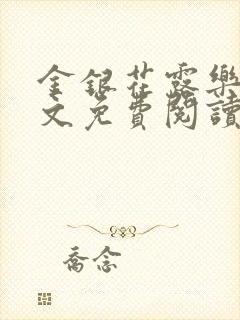 金銀花露樂
文免費閱讀
喬念